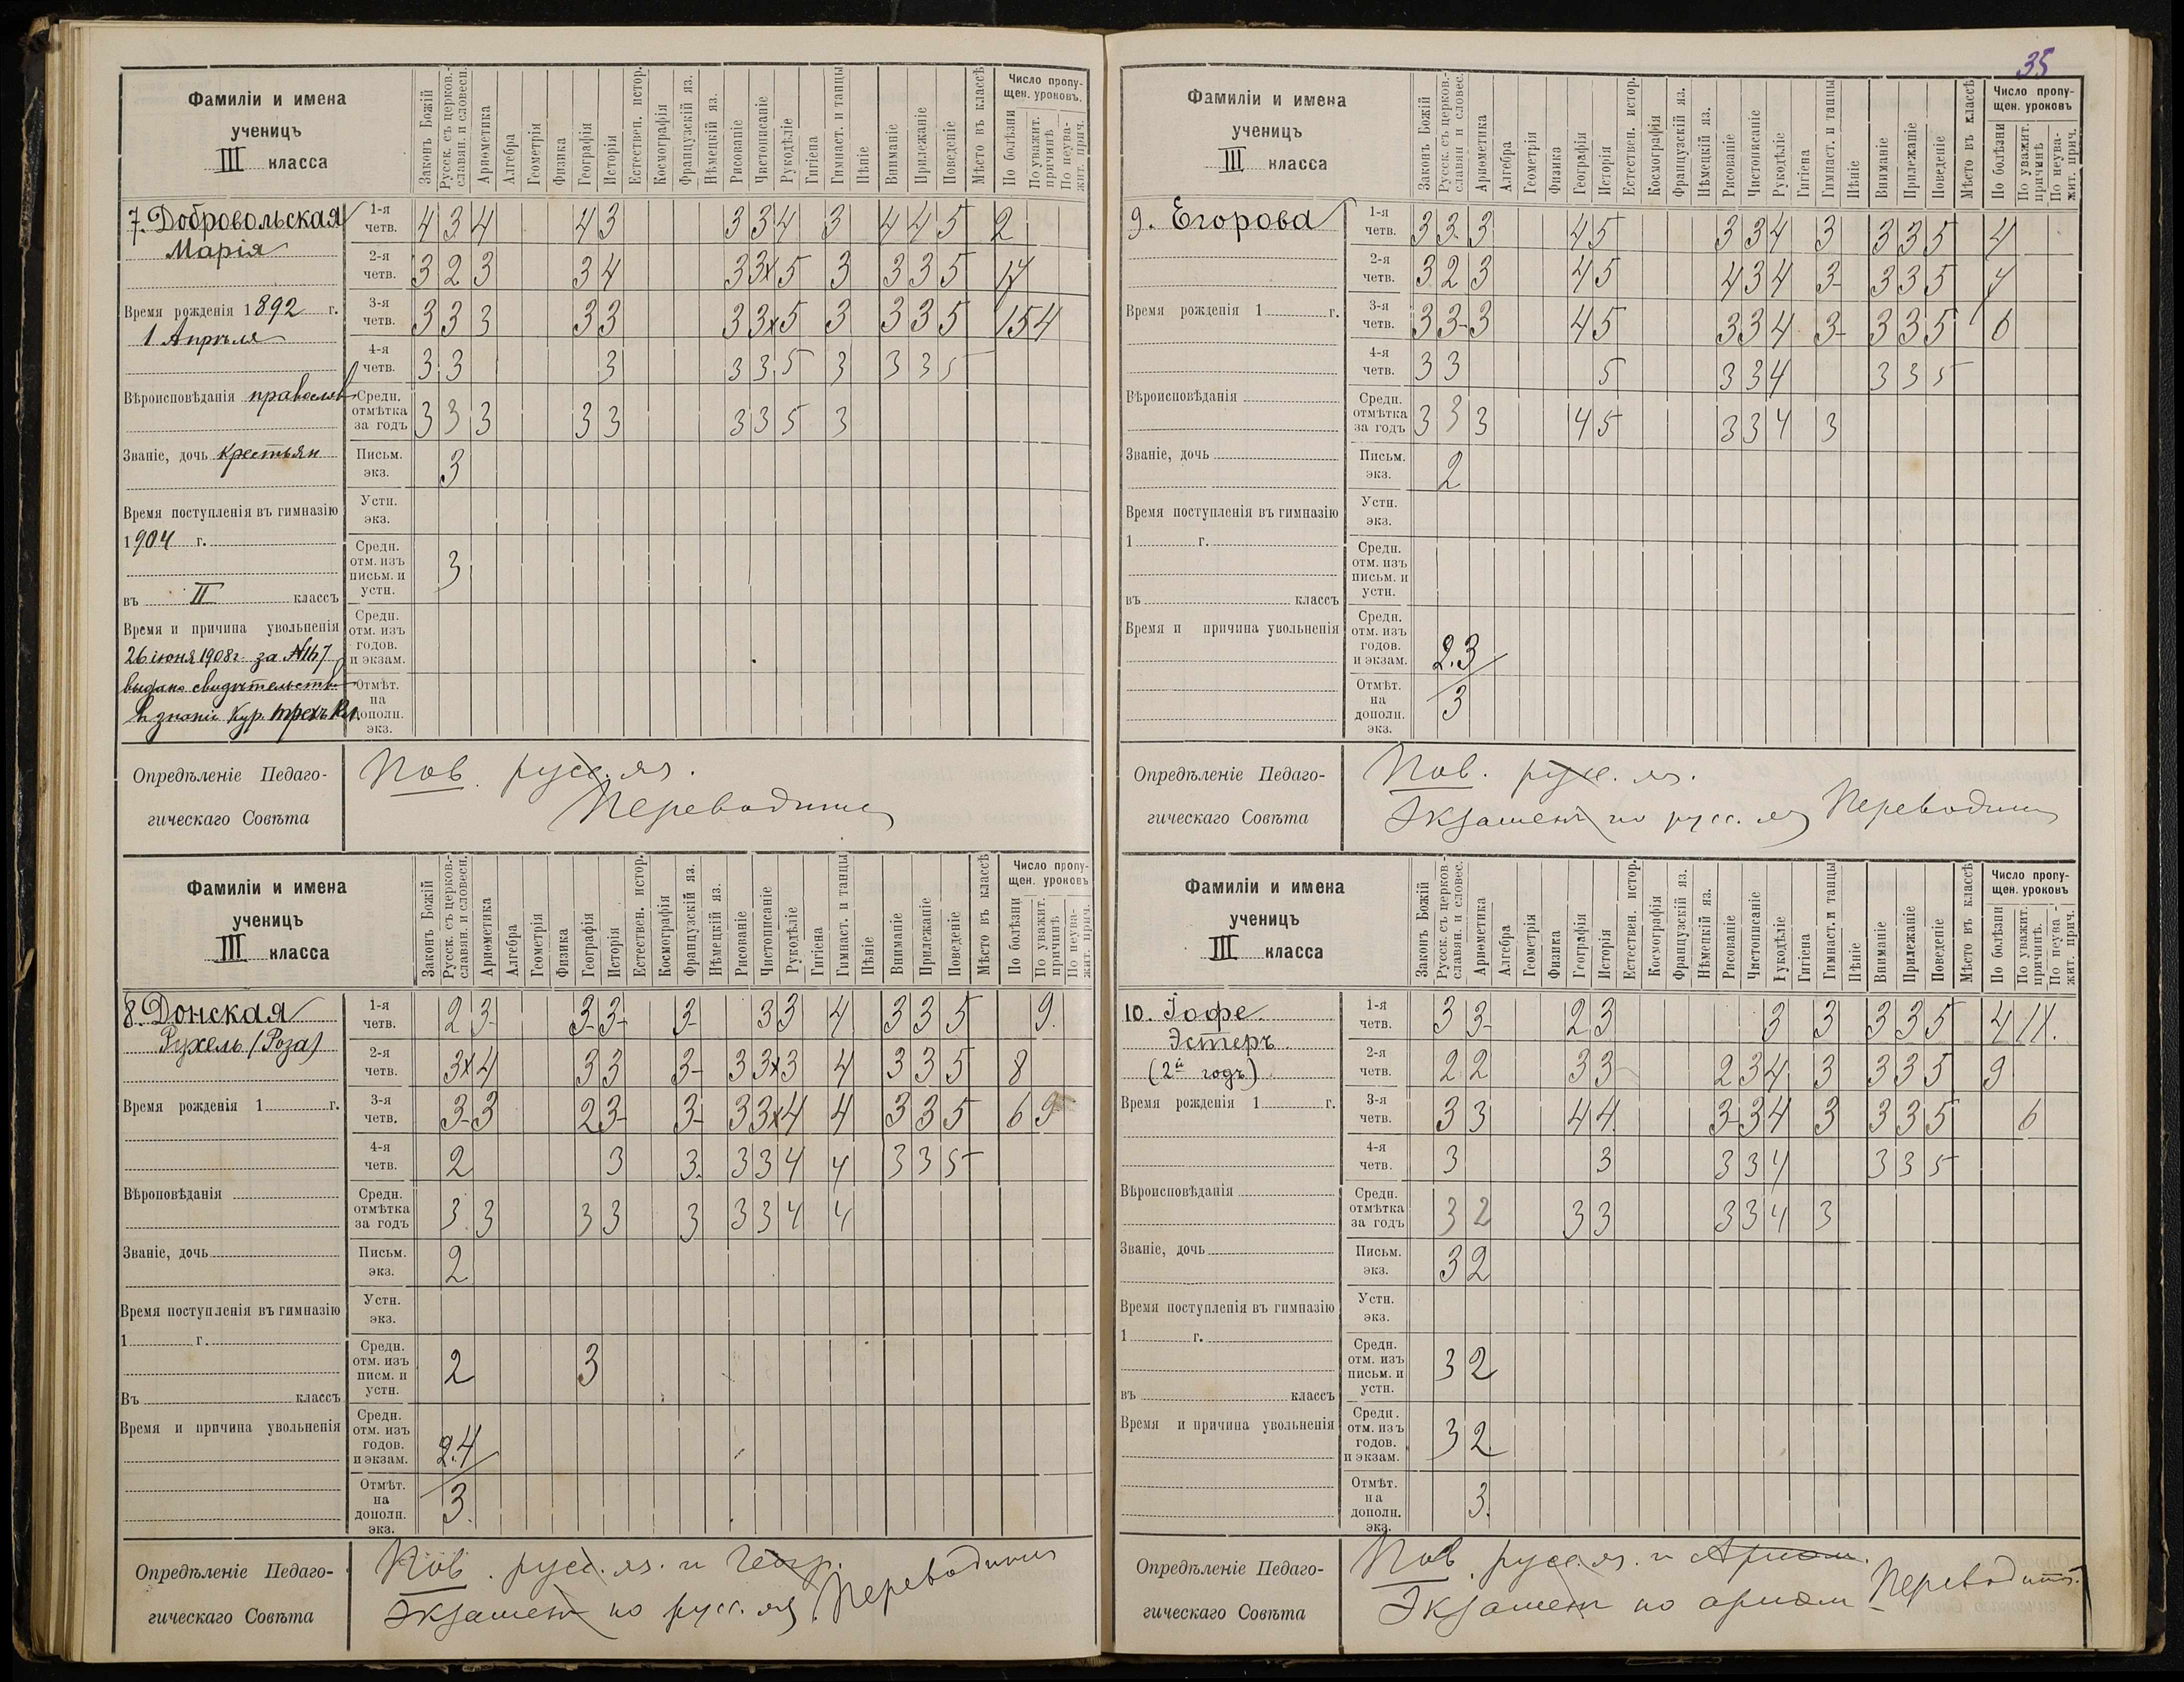 35
Фамиліи и имена
ученицъ
III класса
Законъ Божій
Русск. съ церков.-славян. и словесн.
Ариѳметика
Алгебра
Геометрія
Физика
Географія
Исторія
Естествен. истор.
Космографія
Французскій яз.
Нѣмецкій яз.
Рисованіе
Чистописаніе
Рукодѣліе
Гигіена
Гимнаст. и танцы
Пѣніе
Вниманіе
Прилежаніе
Поведеніе
Мѣсто въ классѣ
Число пропущен. уроковъ.
По болѣзни
По уважит. причинѣ
По неуважит. прич.
7. Добровольская
Марія
1-я четв. 4 3 4 4 3 3 3 4 3 4 4 5 2
2-я четв. 3 2 3 3 4 3 3x 5 3 3 3 5 17
3-я четв. 3 3 3 3 3 3 3x 5 3 3 3 5 15 4
4-я четв. 3 3 3 3 3 5 3 3 3 5
Средн. отмѣтка за годъ 3 3 3 3 3 3 3 5 3
Письм. экз. 3
Устн. экз.
Средн. отм. изъ письм. и устн. 3
Средн. отм. изъ годов. и экзам.
Отмѣт. на дополн. экз.
Время рожденія 1892 г.
1 Апрѣля
Вѣроисповѣданія православ
Званіе, дочь крестьян
Время поступленія въ гимназію
1904 г.
въ II классъ
Время и причина увольненія
26 іюня 1908 г. за №167
выдано свидѣтельств
знаніи кур. трехъ кл.
Опредѣленіе Педаго-
гическаго Совѣта
Пов. русс. яз.
Переводится
Фамиліи и имена
ученицъ
III класса
Законъ Божій
Русск. съ церков.-славян. и словесн.
Ариѳметика
Алгебра
Геометрія
Физика
Географія
Исторія
Естествен. истор.
Космографія
Французскій яз.
Нѣмецкій яз.
Рисованіе
Чистописаніе
Рукодѣліе
Гигіена
Гимнаст. и танцы
Пѣніе
Вниманіе
Прилежаніе
Поведеніе
Мѣсто въ классѣ
Число пропущен. уроковъ
По болѣзни
По уважит. причинѣ
По неуважит. прич.
8. Донская
Рухель (Роза)
1-я четв. 2 3- 3- 3- 3- 3 3 4 3 3 5 9.
2-я четв. 3x 4 3 3 3- 3 3x 3 4 3 3 5 8
3-я четв. 3- 3 2 3- 3- 3 3x 4 4 3 3 5 6 9
4-я четв. 2 3 3. 3 3 4 4 3 3 5
Средн. отмѣтка за годъ 3. 3 3 3 3 3 3 4 4
Письм. экз. 2
Устн. экз.
Средн. отм. изъ писм. и устн. 2 3
Средн. отм. изъ годов. и экзам. 2.4
Отмѣт. на дополн. экз. 3.
Время рожденія 1 г.
Вѣроповѣданія
Званіе, дочь
Время поступленія въ гимназію
1 г.
Въ классъ
Время и причина увольненія
Опредѣленіе Педаго-
гическаго Совѣта
Пов. русс. яз. и Геогр.
Экзамен по русс. яз. Переводится
Фамиліи и имена
ученицъ
III класса
Законъ Божій
Русск. съ церков.-славян и словес.
Ариѳметика
Алгебра
Геометрія
Физика
Географія
Исторія
Естествен. истор.
Космографія
Французскій яз.
Нѣмецкій яз.
Рисованіе
Чистописаніе
Рукодѣліе
Гигіена
Гимнаст. и танцы
Пѣніе
Вниманіе
Прилежаніе
Поведеніе
Мѣсто въ классѣ
Число пропущен. уроковъ
По болѣзни
По уважит. причинѣ
По неуважит. прич.
9. Егорова
1-я четв. 3 3 3 4 5 3 3 4 3 3 3 5 4
2-я четв. 3 2 3 4 5 4 3 4 3- 3 3 5 7
3-я четв. 3 3- 3 4 5 3 3 4 3- 3 3 5 6
4-я четв. 3 3 5 3 3 4 3 3 5
Средн. отмѣтка за годъ 3 3 3 4 5 3 3 4 3
Письм. экз. 2
Устн. экз.
Средн. отм. изъ письм. и устн.
Средн. отм. изъ годов. и экзам. 2.3
Отмѣт. на дополн. экз. 3
Время рожденія 1 г.
Вѣроисповѣданія
Званіе, дочь
Время поступленія въ гимназію
1 г.
въ классъ
Время и причина увольненія
Опредѣленіе Педаго-
гическаго Совѣта
Пов. русс. яз.
Экзамен по русс. яз Переводится
Фамиліи и имена
ученицъ
III класса
Законъ Божій
Русск. съ церков-славян. и словес.
Ариѳметика
Алгебра
Геометрія
Физика
Географія
Исторія
Естествен. истор.
Космографія
Французскій яз.
Нѣмецкій яз.
Рисованіе
Чистописаніе
Рукодѣліе
Гигіена
Гимнаст. и танцы
Пѣніе
Вниманіе
Прилежаніе
Поведеніе
Мѣсто въ классѣ
Число пропущен. уроковъ
По болѣзни
По уважит. причинѣ.
По неуважит. прич.
10. Іофе
Эстеръ
(2й годъ)
1-я четв. 3 3- 2 3 3 3 3 3 5 4 11.
2-я четв. 2 2 3 3- 2 3 4 3 3 3 5 9
3-я четв. 3 3 4 4 3- 3 4 3 3 3 5 6
4-я четв. 3 3 3 3 4 3 3 5
Средн. отмѣтка за годъ 3 2 3 3 3 3 4 3
Письм. экз. 3 2
Устн. экз.
Средн. отм. изъ письм. и устн. 3 2
Средн. отм. изъ годов. и экзам. 3 2
Отмѣт. на дополн. экз. 3.
Время рожденія 1 г.
Вѣроисповѣданія
Званіе, дочь
Время поступленія въ гимназію
1 г.
въ классъ
Время и причина увольненія
Опредѣленіе Педаго-
гическаго Совѣта
Пов. русс. яз. и Ариѳм.
Экзамен по ариѳм - Переводится.